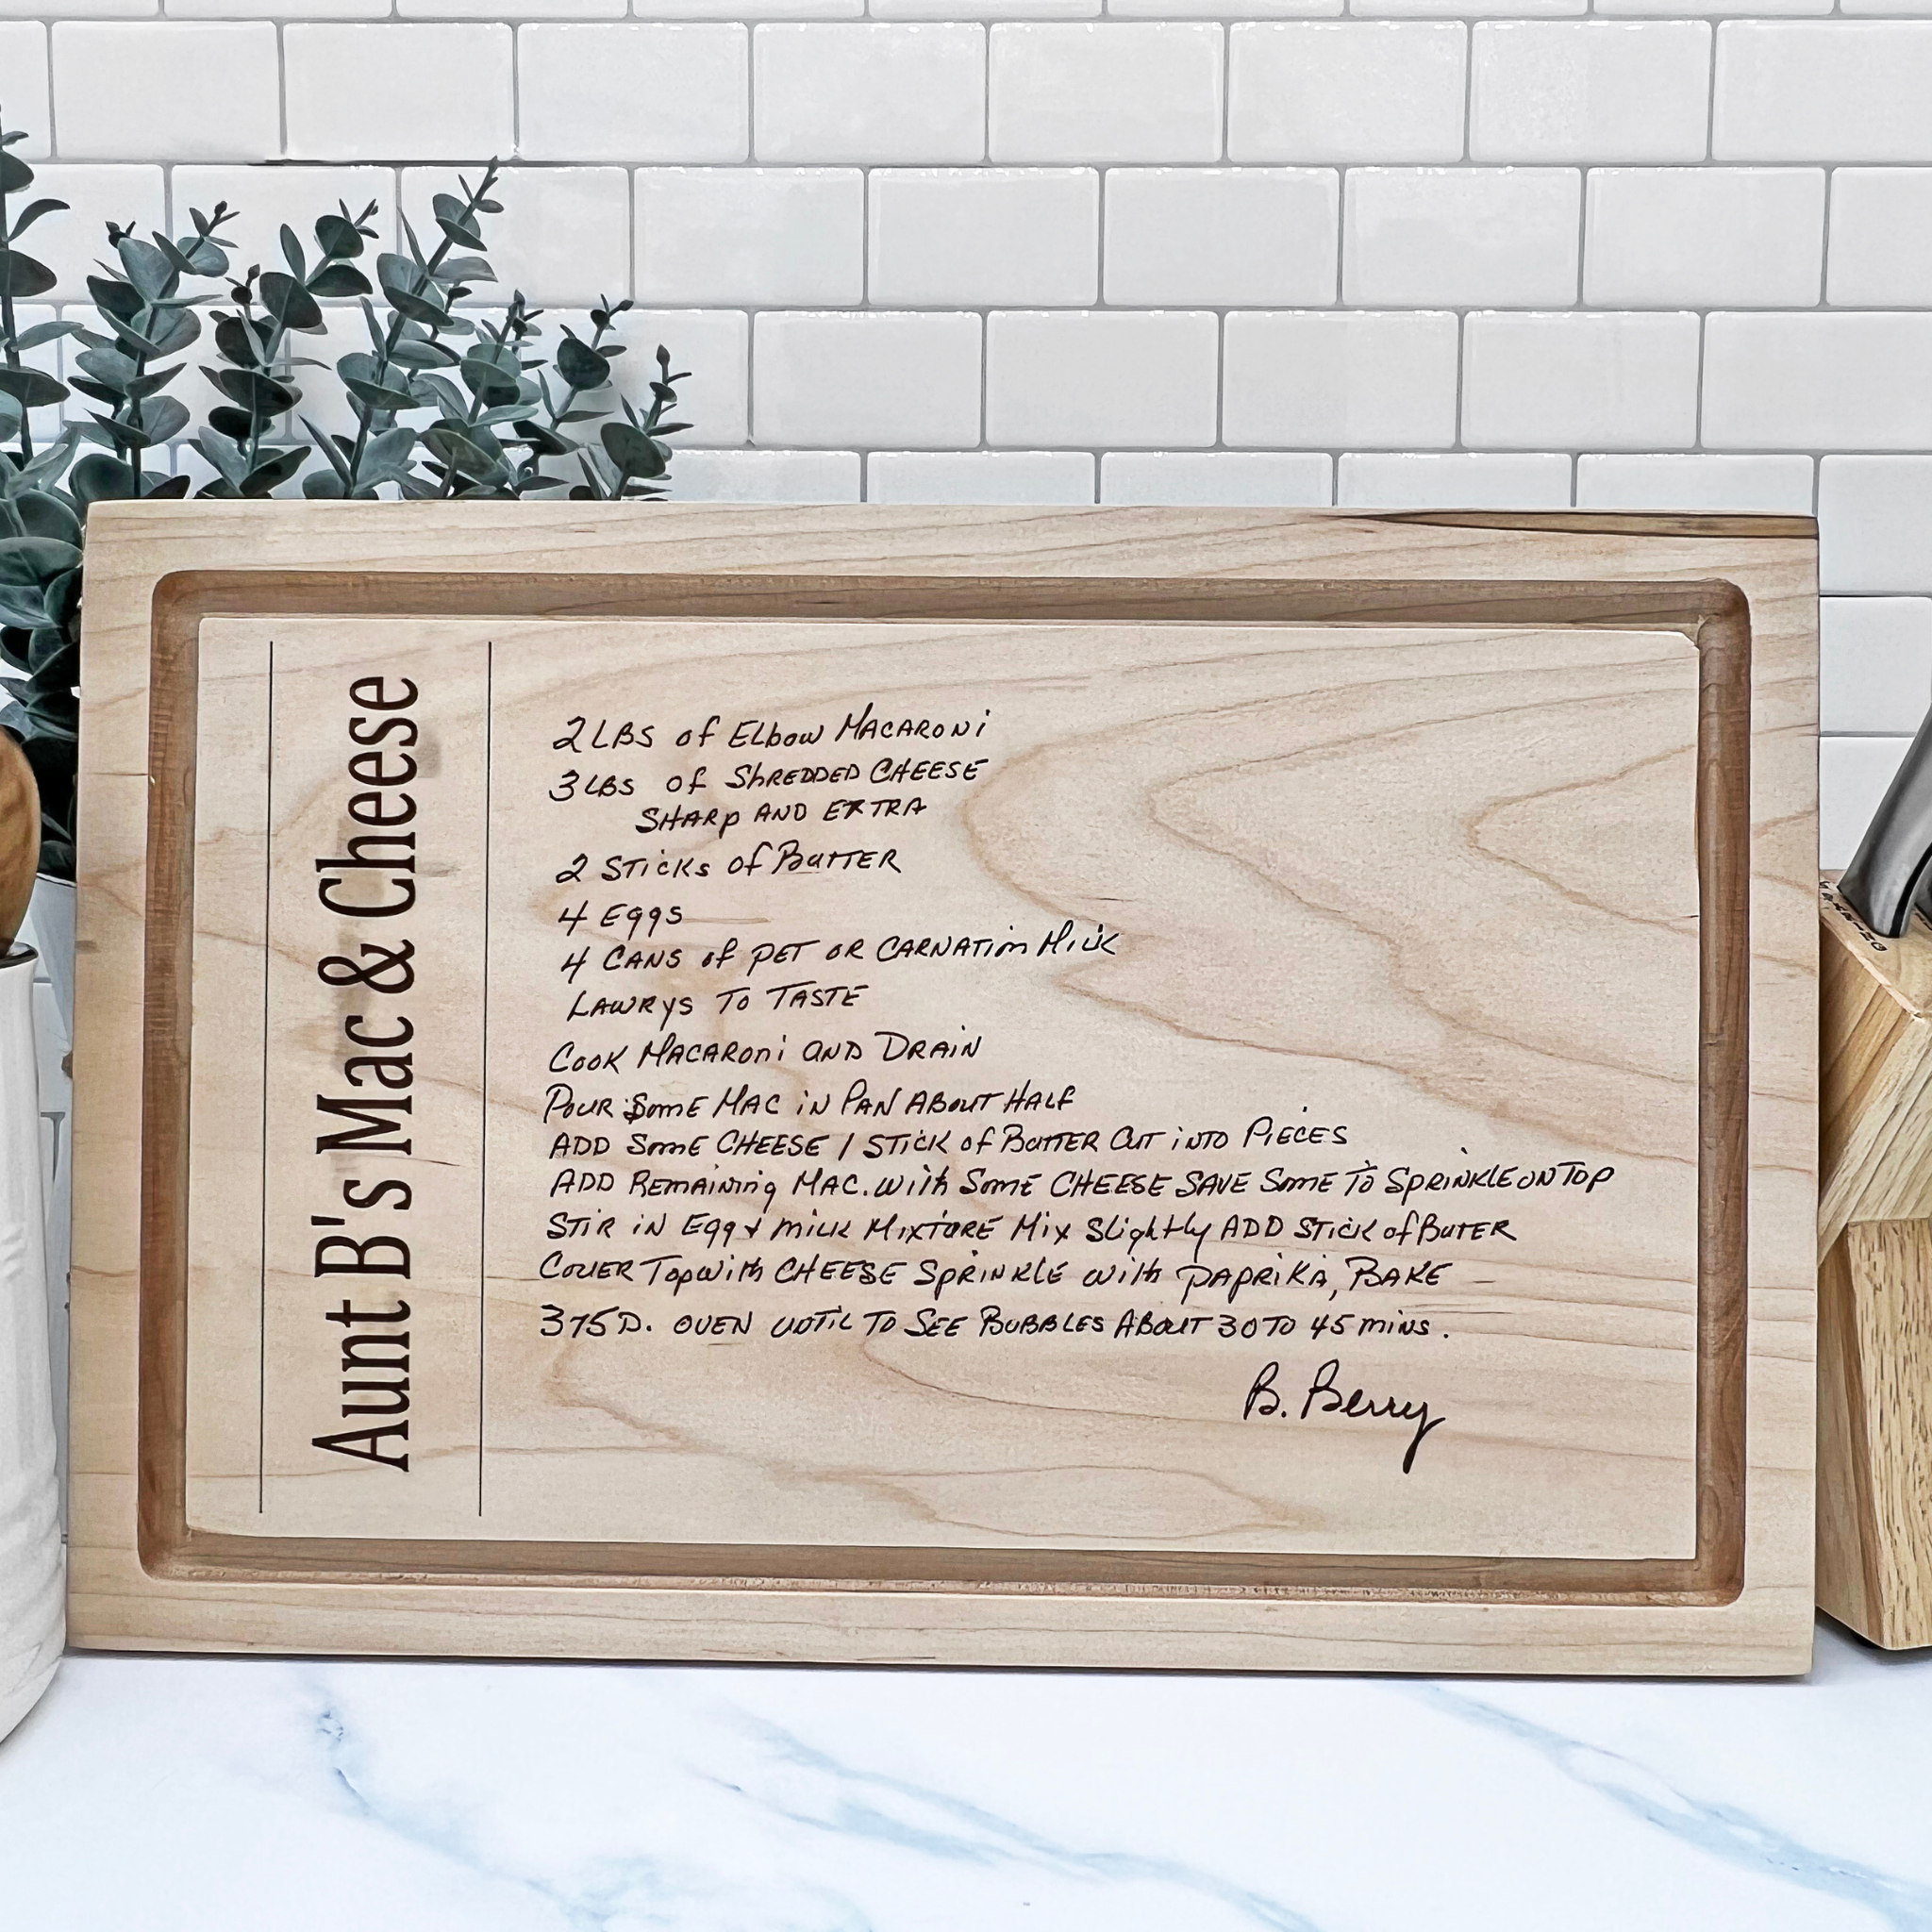 Aunt B's Mac & Cheese
2 LBS of Elbow MACARONi
3 LBS of ShREDDED CHEESE
SHARP AND EXTRA
2 STicKs of BuTTER
4 Eggs
4 CANS of PET OR CARNATion Milk
LAWRYS TO TASTE
COOK MACARONi AND DRAiN
POUR SomE MAC iN PAN ABOUT HALF
ADD SomE CHEESE 1 STicK of BUTTER CUT iNTO PiECES
ADD REMAiNiNg MAC. With SomE CHEESE SAVE SomE To SPRiNKLE ON TOP
STiR iN Egg & MiLK MixTURE Mix Slightly ADD STicK of BUTER
COVER Top With CHEESE SPRiNKLE With PAPRiKA, BAKE
375 D. OVEN UNTiL TO SEE BUBBLES ABOUT 30 TO 45 MiNS.
B. Berry